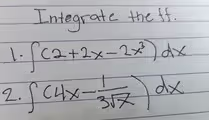 Integrate the ff.
1. ∫(2+2x-2x³) dx
2. ∫(4x - 1/(3√x)) dx